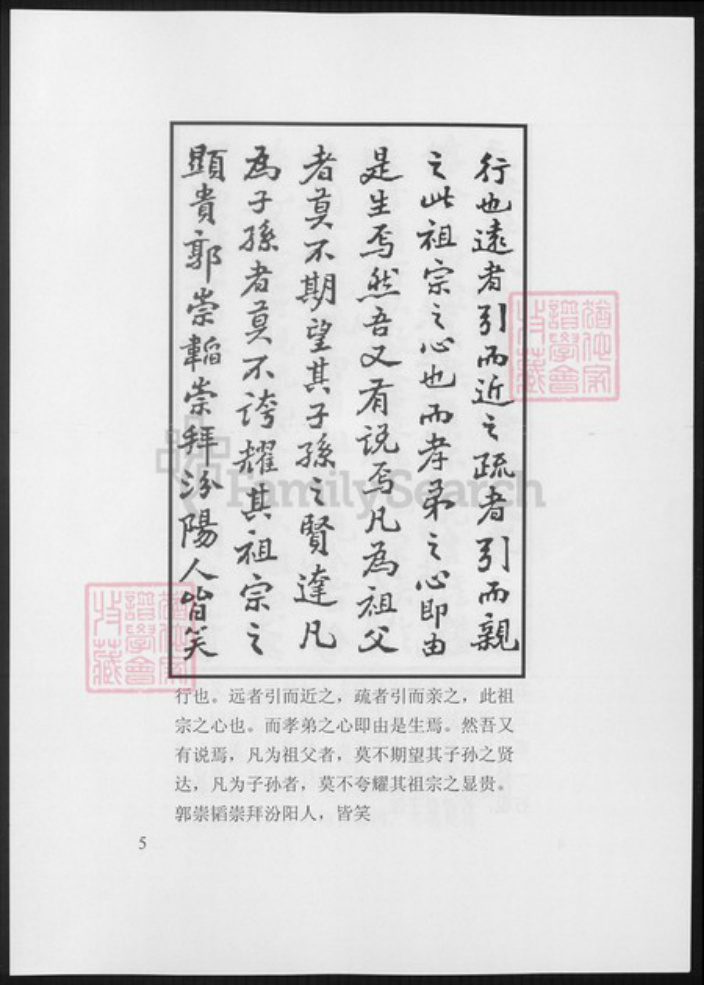 行也遠者引而近之疏者引而親
之此祖宗之心也而孝弟之心即由
是生焉然吾又有説焉凡為祖父
者莫不期望其子孫之賢達凡
為子孫者莫不誇耀其祖宗之
顯貴郭崇韜崇拜汾陽人皆笑
FamilySearch
行也。远者引而近之，疏者引而亲之，此祖
宗之心也。而孝弟之心即由是生焉。然吾又
有说焉，凡为祖父者，莫不期望其子孙之贤
达，凡为子孙者，莫不夸耀其祖宗之显贵。
郭崇韬崇拜汾阳人，皆笑
5